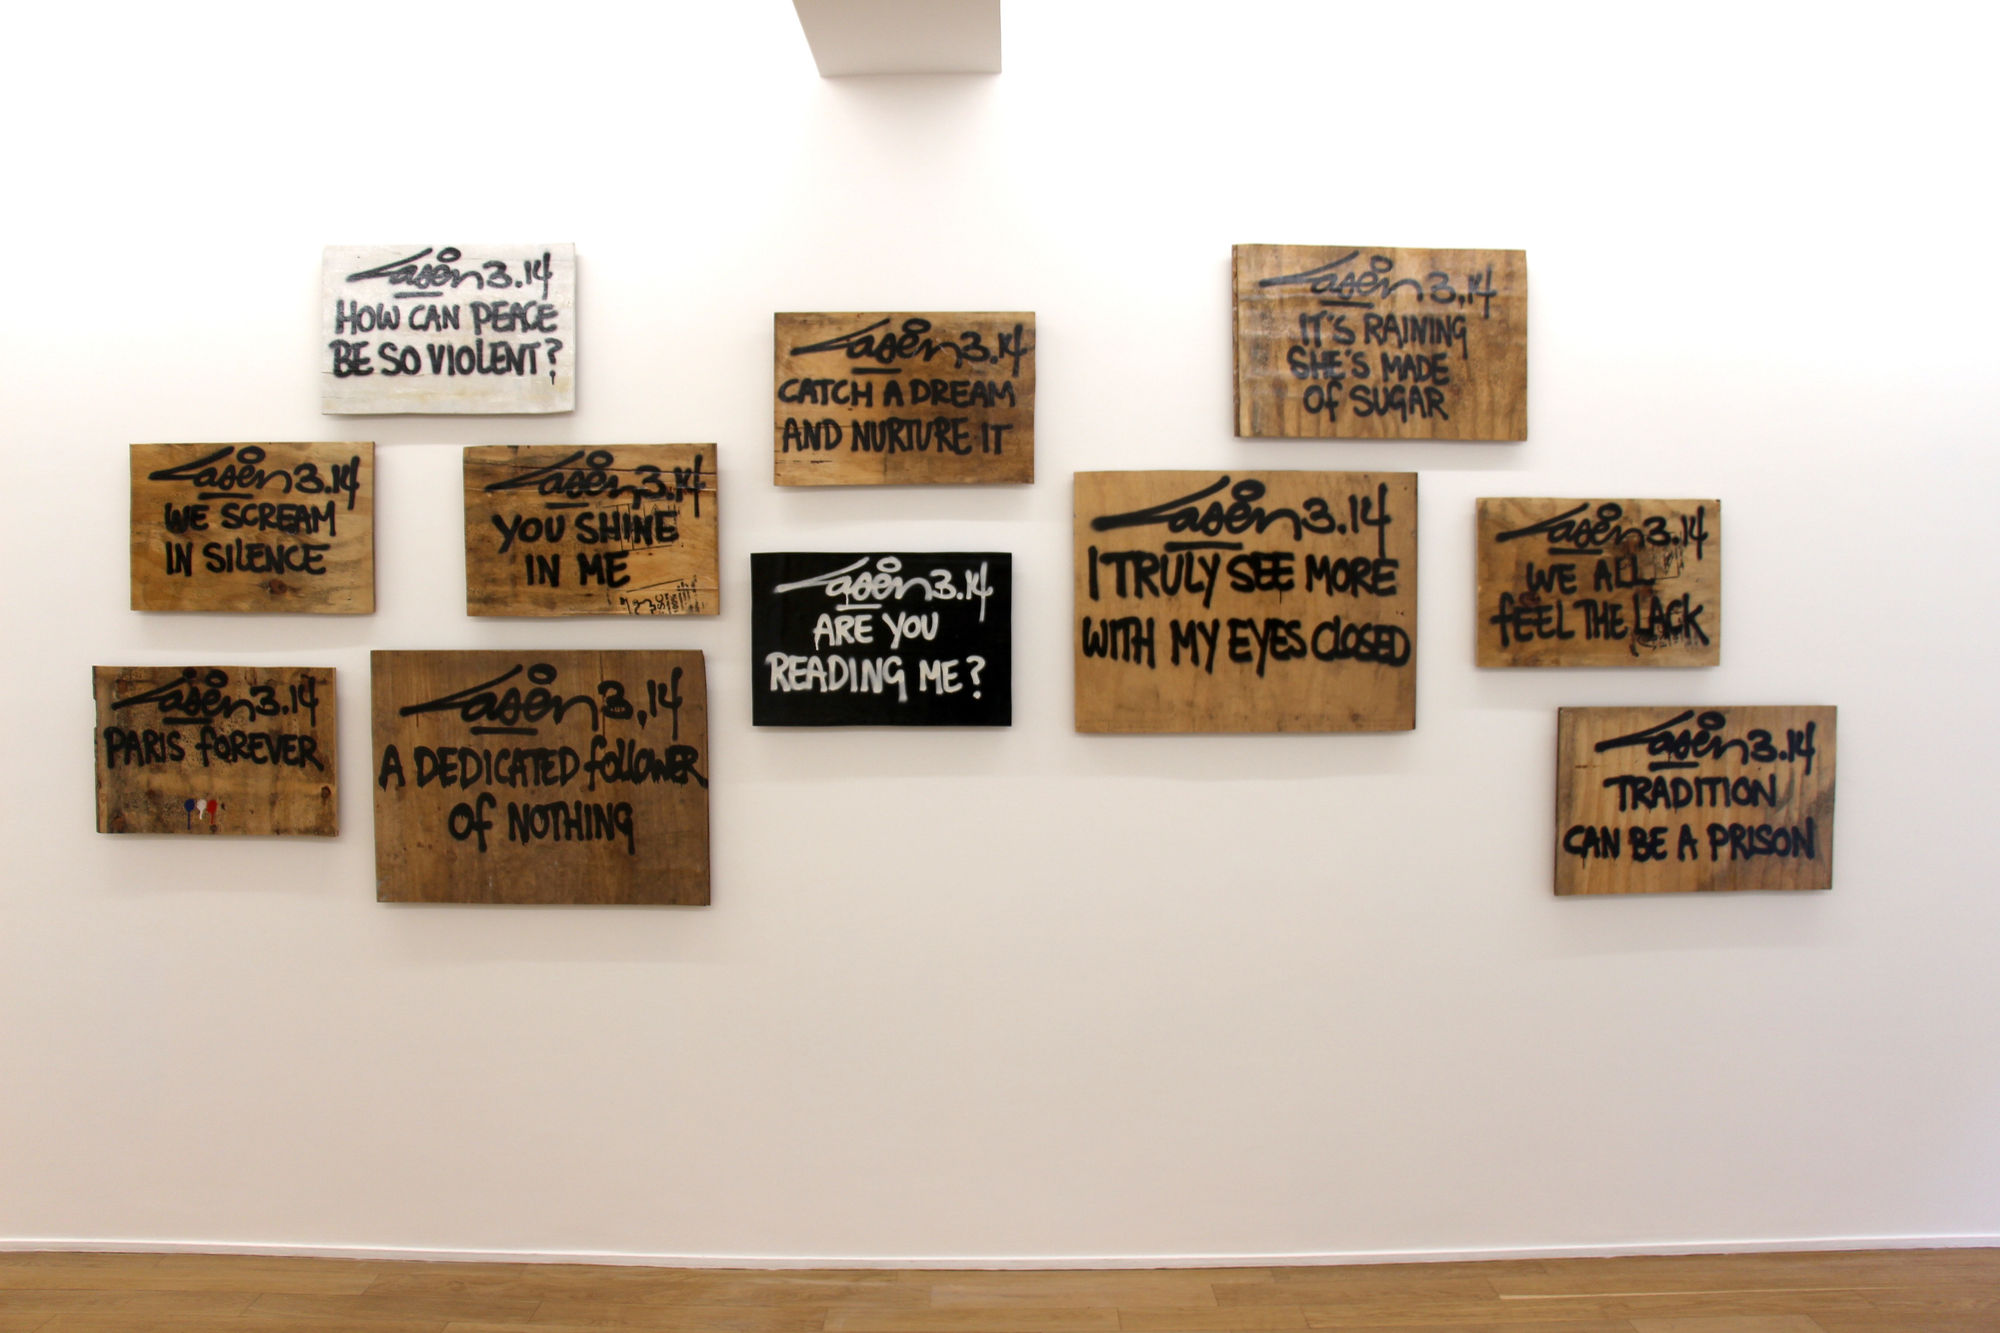 Laser 3.14
HOW CAN PEACE
BE SO VIOLENT?
Laser 3.14
WE SCREAM
IN SILENCE
Laser 3.14
YOU SHINE
IN ME
Laser 3.14
PARIS fOREVER
Laser 3.14
A DEDICATED follOWER
Of NOTHING
Laser 3.14
CATCH A DREAM
AND NURTURE IT
Laser 3.14
ARE YOU
READING ME?
Laser 3.14
IT'S RAINING
SHE'S MADE
Of SUGAR
Laser 3.14
I TRULY SEE MORE
WITH MY EYES ClOSED
Laser 3.14
WE ALL
fEEL THE LACK
Laser 3.14
TRADITION
CAN BE A PRISON